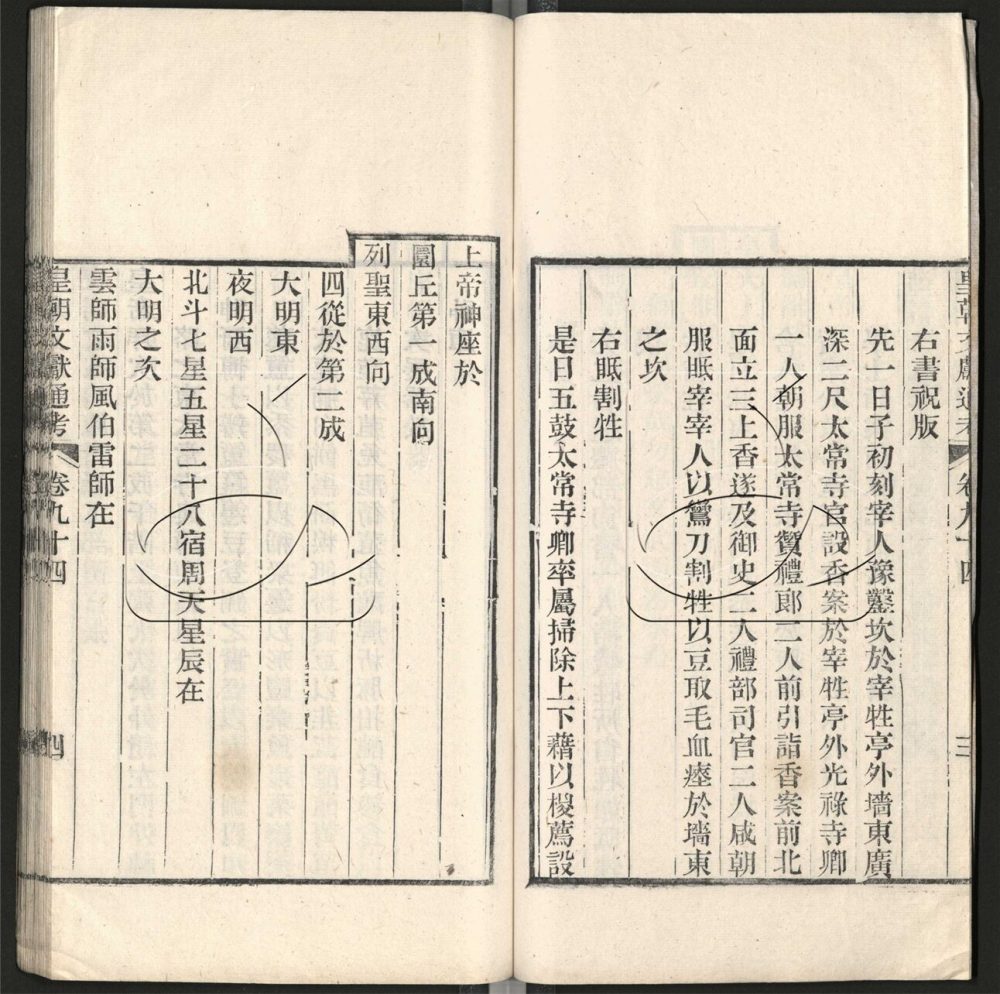 皇朝文獻通考 卷九十四 三
右書祝版
先一日子初刻宰人豫鑿坎於宰牲亭外墻東廣
深二尺太常寺官設香案於宰牲亭外光祿寺卿
一人朝服太常寺贊禮郎二人前引詣香案前北
面立三上香遂及御史二人禮部司官二人咸朝
服眡宰宰人以鸞刀割牲以豆取毛血瘞於墻東
之坎
右眡割牲
是日五鼓太常寺卿率屬掃除上下藉以椶薦設
上帝神座於
圜丘第一成南向
列聖東西向
四從於第二成
大明東
夜明西
北斗七星五星二十八宿周天星辰在
大明之次
雲師雨師風伯雷師在
皇朝文獻通考 卷九十四 四